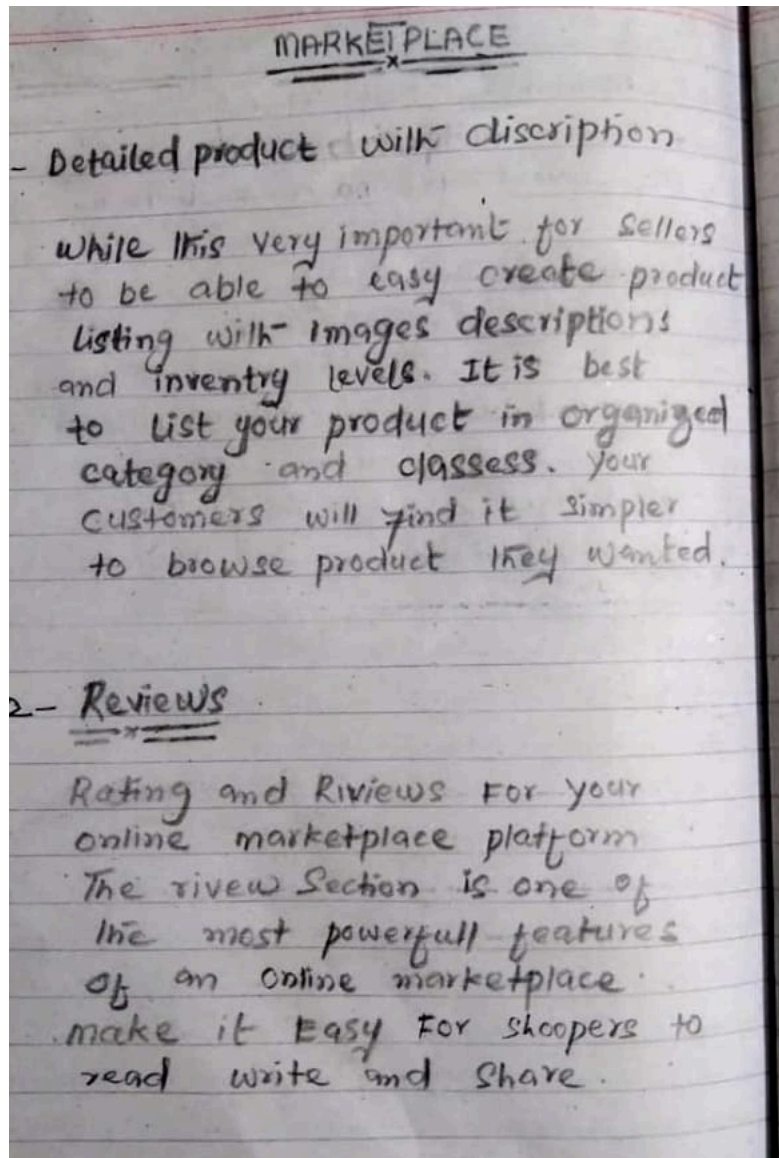 MARKETPLACE
- Detailed product with discription
while this very important for sellers
to be able to easy create product
listing with images descriptions
and inventry levels. It is best
to list your product in organized
category and classess. your
customers will find it simpler
to browse product they wanted.
2- Reviews
Rating and Riviews For your
online marketplace platform
The rivew Section is one of
the most powerfull features
of an online marketplace.
make it Easy For shoopers to
read write and share.